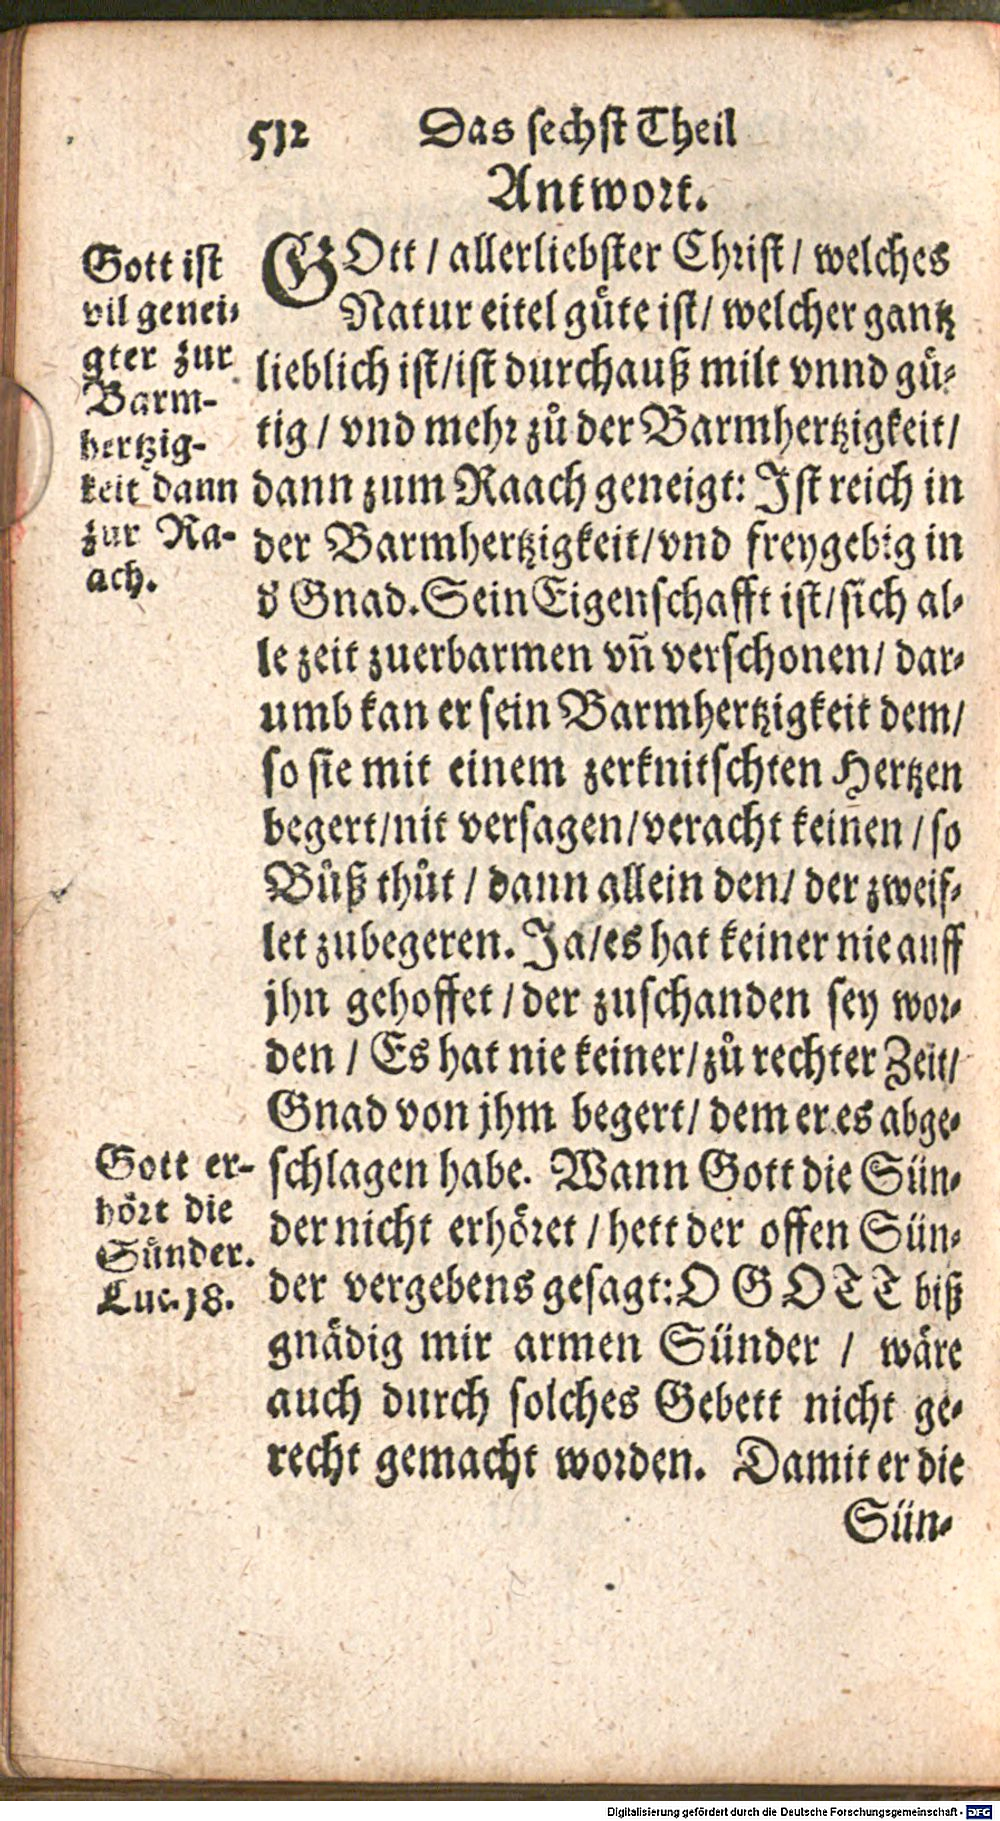 512 Das sechst Theil
Antwort.
Gott ist
vil genei-
gter zur
Barm-
hertzig-
keit dann
zur Ra-
ach.
GOtt / allerliebster Christ / welches
Natur eitel güte ist / welcher gantz
lieblich ist / ist durchauß milt vnnd gü-
tig / vnd mehr zů der Barmhertzigkeit /
dann zum Raach geneigt: Ist reich in
der Barmhertzigkeit / vnd freygebig in
d̕ Gnad. Sein Eigenschafft ist / sich al-
le zeit zuerbarmen vñ verschonen / dar-
umb kan er sein Barmhertzigkeit dem /
so sie mit einem zerknitschten Hertzen
begert / nit versagen / veracht keinen / so
Bůß thůt / dann allein den / der zweif-
let zubegeren. Ja / es hat keiner nie auff
jhn gehoffet / der zuschanden sey wor-
den / Es hat nie keiner / zů rechter Zeit /
Gnad von jhm begert / dem er es abge-
schlagen habe. Wann Gott die Sün-
der nicht erhöret / hett der offen Sün-
der vergebens gesagt: O GOTT biß
gnädig mir armen Sünder / wäre
auch durch solches Gebett nicht ge-
recht gemacht worden. Damit er die
Gott er-
hört die
Sünder.
Luc. 18.
Sün-
Digitalisierung gefördert durch die Deutsche Forschungsgemeinschaft - DFG